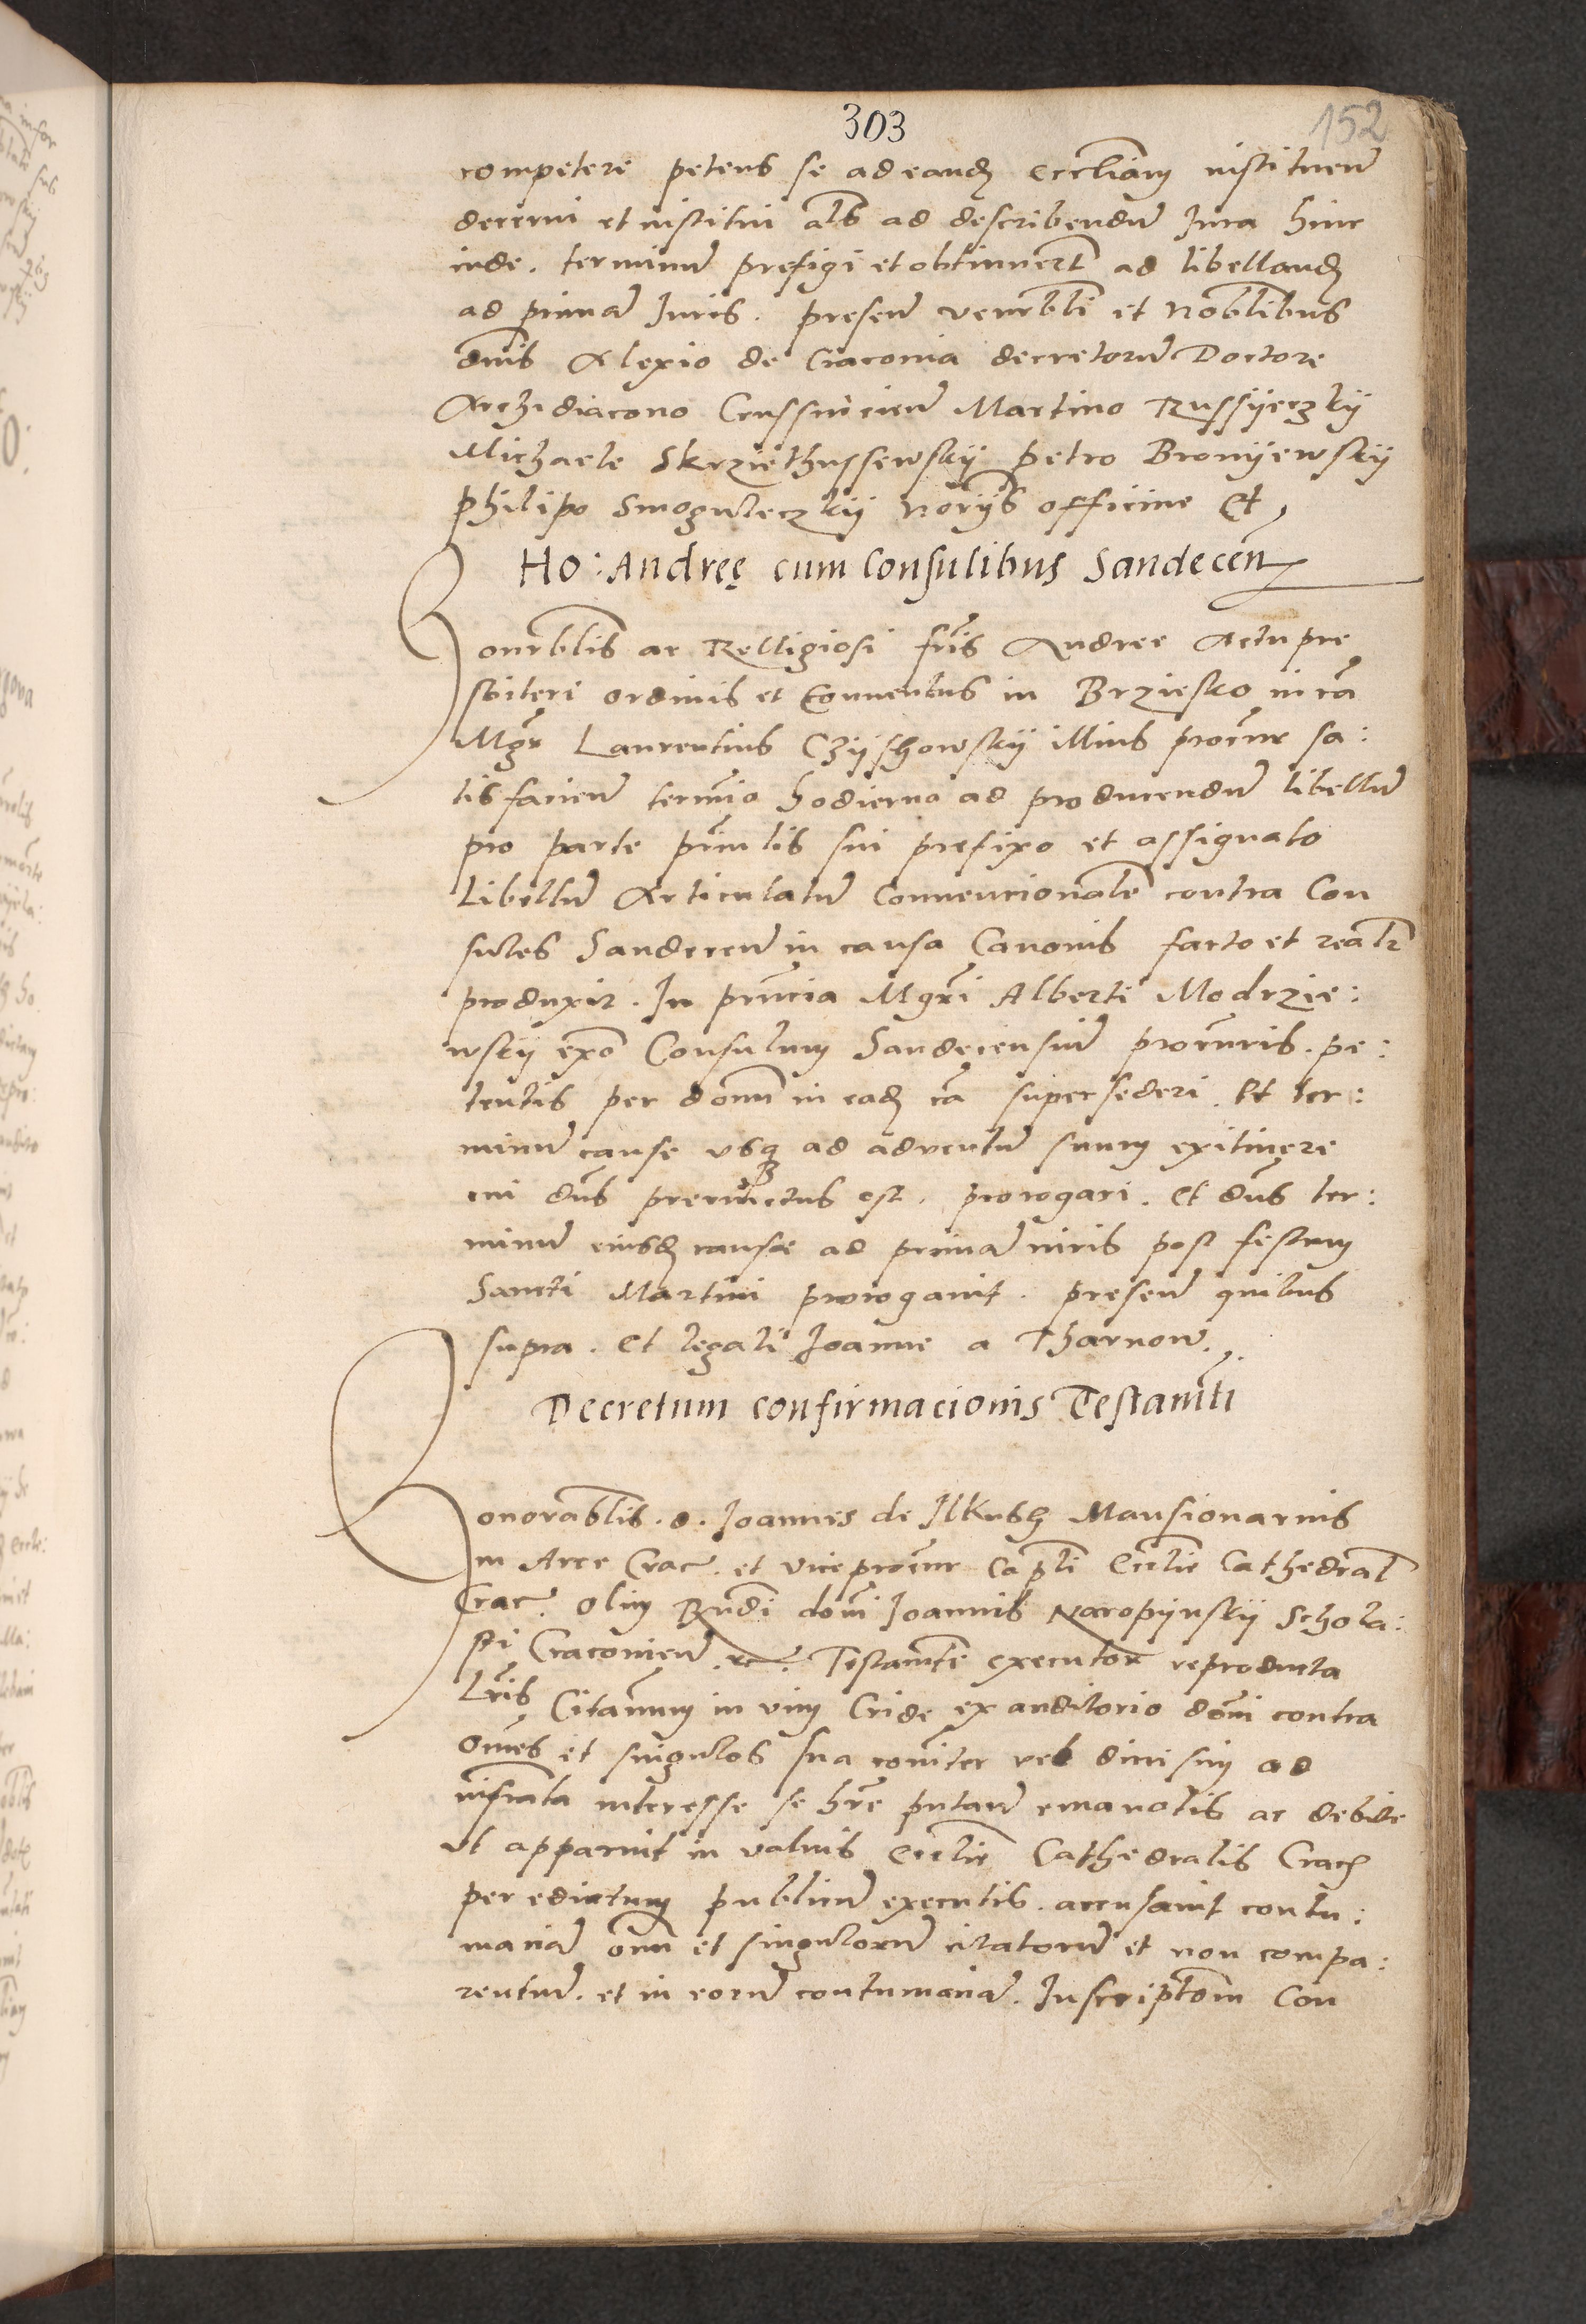 303
152
competere petens se ad eand eccliam instituen
decerni et institui als ad describendu Iura hinc
inde. terminu prefigi et obtinuert ad libelland
ad prima Iuris. presen venerbli et Noblibus
dnis Alexio de Craconia decretoru Doctore
Archidiacono Martino Russyeczky
Michaele Skrziethussewsky petro Bronyewsky
philipo Smoguleczky Norijs officine et
Ho: Andreę cum Consulibus Sandecen
Honorblis ac Relligiosi fris Andree pre
sbiteri ordinis et Conventus in Brziesko in ca
Mgr Laurentius Czyschowsky illius procur sa:
tisfacien termio hodierno ad producendu libellu
pro parte prinlis sui prefixo et assignato
Libellu Articulatu Convencionale contra Con
sules Sandecen in causa Canonis facto et realr
produxit. In pnцia Mgri Alberti Modrzie:
wsky exo Consulum Sandecensiu procuris. pe:
tentis per donm in ead ca supersederi. Et ter:
minu cause usq ad adventu suum ex itinere
cui dns est. prorogari. Et dns ter:
minu eiusd causae ad prima iuris post festum
Sancti Martini prorogavit. presen quibus
supra. et legali Joanne a Tharnow.
Decretum confirmacionis Testamti
Honorablis. d. Joannes de Ilkusch Mansionarius
in Arce Crac. et viceprocur Capli Ecclie Cathedral
Crac. olim Rndi domi Joannis Naropynsky Schola:
sti Craconien. rc. Testamti executor reproducta
Lris Citanum in vim Cride ex auditorio domi contra
omes et singulos sua coniter vel divisim ad
infrata interesse se hre putan emanatis ac debite
ut apparuit in valvis Ecclie Cathedralis Crac
per edictum publicu executis. accusavit contu:
macia omn et singuloru citatoru et non compa:
rentiu. et in eoru contumacia. Inscriptom Con